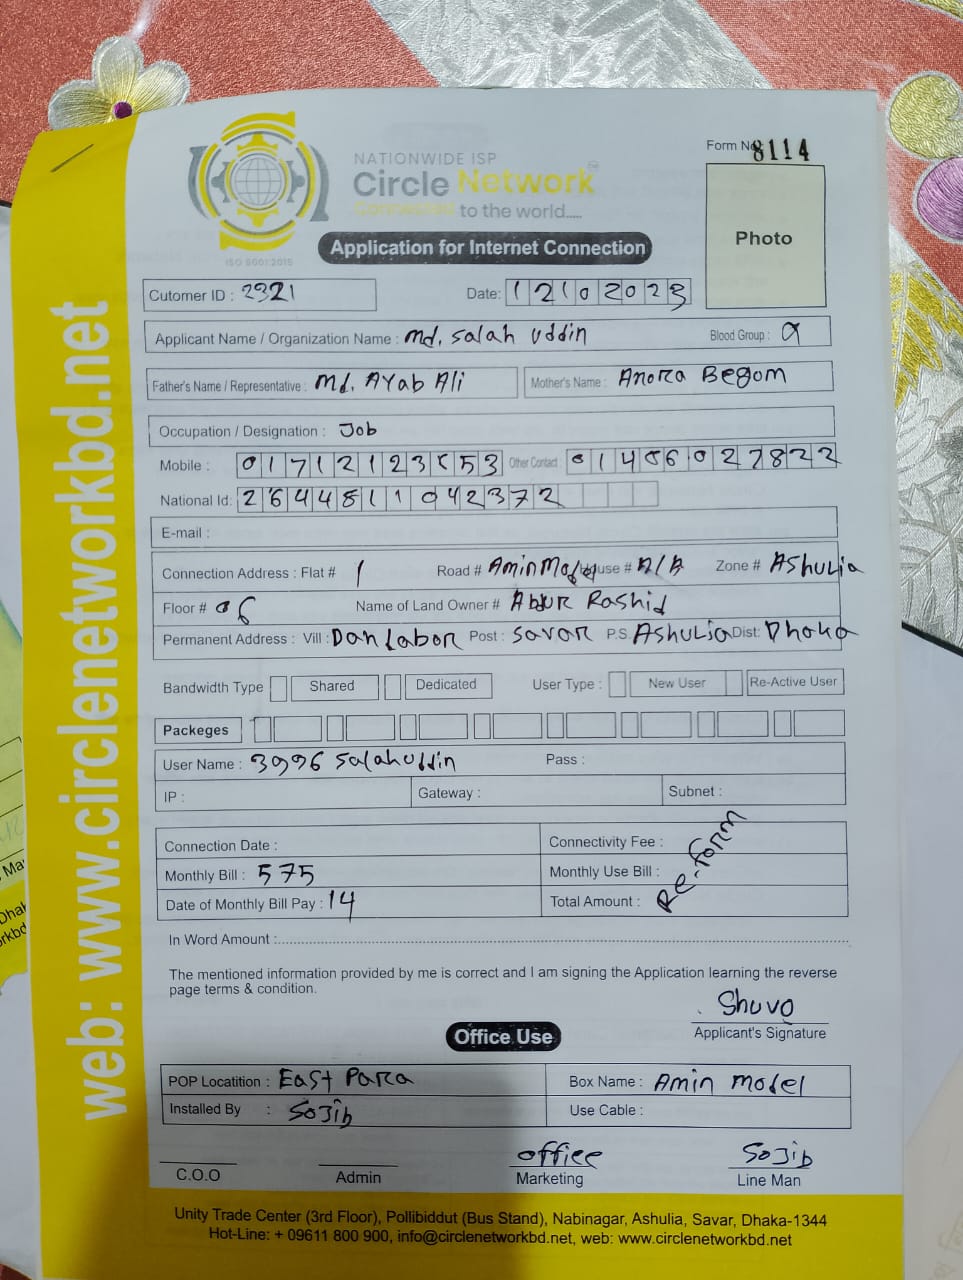 Form No 8114
NATIONWIDE ISP
Circle Network
Connected to the world.....
ISO 9001:2015
Application for Internet Connection
Photo
Cutomer ID : 2321
Date: 12102023
Applicant Name / Organization Name : md. Salah Uddin Blood Group : a
Father's Name / Representative : Md. Ayab Ali Mother's Name : Anora Begom
Occupation / Designation : Job
Mobile : 01712123553 Other Contact : 01406027822
National Id: 2644811042372
E-mail :
Connection Address : Flat # 1 Road # Amin Model House # N/A Zone # AShuLia
Floor # 06 Name of Land Owner # Abdur Rashid
Permanent Address : Vill : Danlabor Post : Savar P.S. AShuLia Dist: Dhaka
Bandwidth Type Shared Dedicated User Type : New User Re-Active User
Packeges
User Name : 3996 Salahuddin Pass :
IP : Gateway : Subnet :
Connection Date : Connectivity Fee :
Monthly Bill : 575 Monthly Use Bill :
Date of Monthly Bill Pay : 14 Total Amount :
Re-form
In Word Amount :
The mentioned information provided by me is correct and I am signing the Application learning the reverse
page terms & condition.
Shuvo
Applicant's Signature
Office Use
POP Locatition : East Para Box Name : Amin model
Installed By : Sojib Use Cable :
office Sojib
C.O.O Admin Marketing Line Man
Unity Trade Center (3rd Floor), Pollibiddut (Bus Stand), Nabinagar, Ashulia, Savar, Dhaka-1344
Hot-Line: + 09611 800 900, info@circlenetworkbd.net, web: www.circlenetworkbd.net
web: www.circlenetworkbd.net